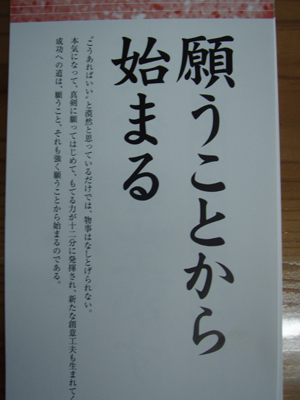 願うことから
始まる
“こうあればいい”と漠然と思っているだけでは、物事はなしとげられない。
本気になって、真剣に願ってはじめて、もてる力が十二分に発揮され、新たな創意工夫も生まれてく
成功への道は、願うこと、それも強く願うことから始まるのである。